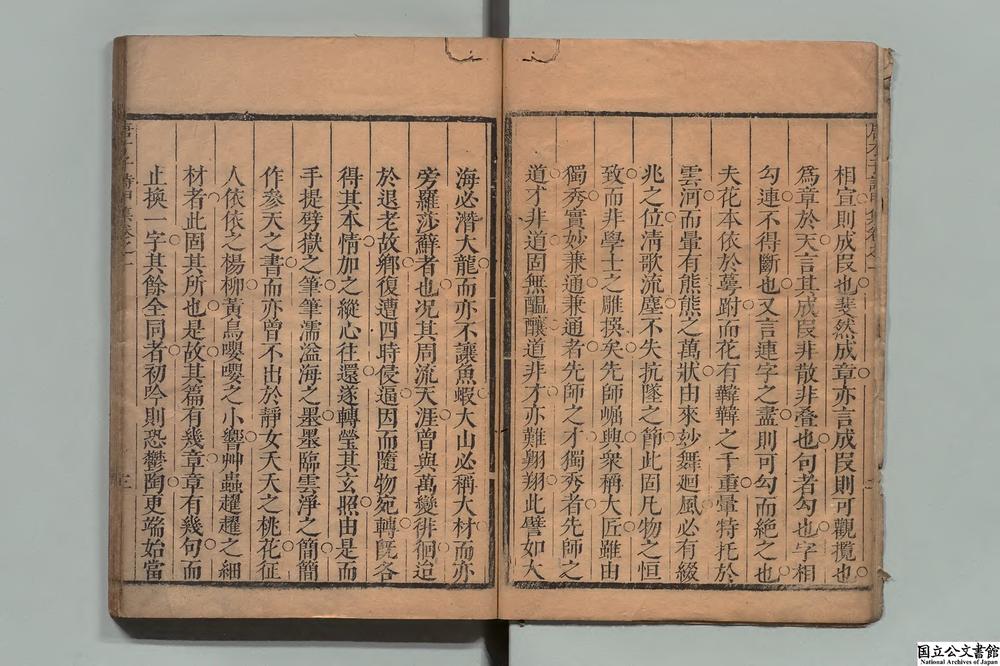 相宣則成叚也斐然成章亦言成叚則可觀攬也
爲章於天言其成叚非散非叠也句者勾也字相
勾連不得斷也又言連字之盡則可勾而絶之也
夫花本依於萼跗而花有韡韡之千重暈特托於
雲河而暈有熊熊之萬狀由來妙舞廻風必有綴
兆之位淸歌流塵不失抗墜之節此固凡物之恒
致而非學士之雕撰矣先師崛興衆稱大匠雖由
獨秀實妙兼通兼通者先師之才獨秀者先師之
道才非道固無醖釀道非才亦難翔翔此譬如大
海必潛大龍而亦不讓魚蝦大山必稱大材而亦
旁羅莎蘚者也况其周流天涯曾與萬變徘徊迨
於退老故鄉復遭四時侵逼因而隨物宛轉旣各
得其本情加之縱心往還遂轉瑩其玄照由是而
手提劈嶽之筆筆濡溢海之墨墨臨雲淨之簡簡
作參天之書而亦曾不出於靜女夭夭之桃花征
人依依之楊柳黃鳥嚶嚶之小響艸蟲趯趯之細
材者此固其所也是故其篇有幾章章有幾句而
止換一字其餘全同者初吟則恐鬱陶更端始當
三
国立公文書館
National Archives of Japan